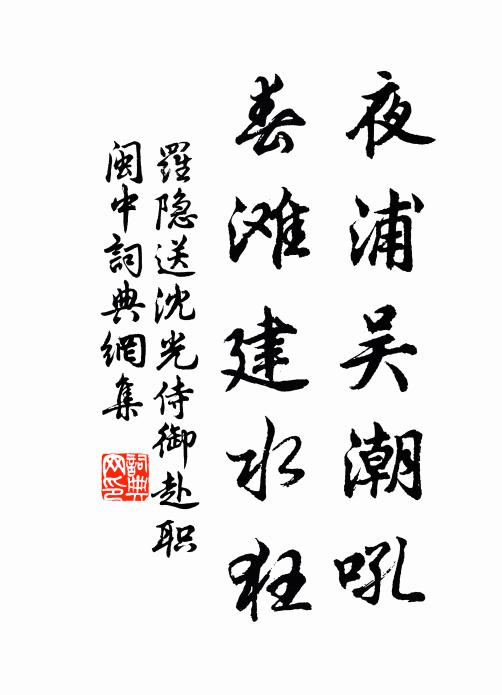 夜浦吴潮吼
春滩建水狂
羅隐送沈光侍御赴职
闽中詞典網集
詞典
网印